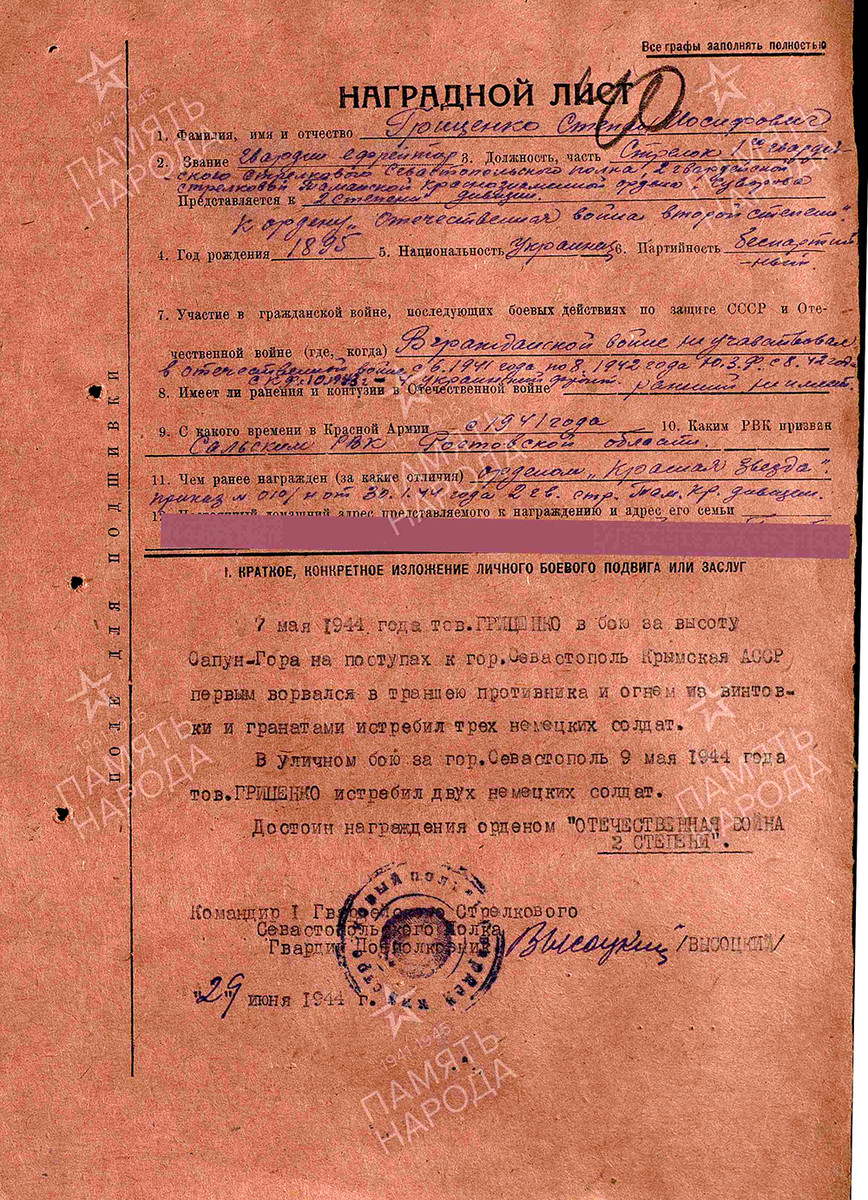 Все графы заполнять полностью
НАГРАДНОЙ ЛИСТ
1. Фамилия, имя и отчество Гриценко Степан Иосифович
2. Звание Гвардии ефрейтор 3. Должность, часть Стрелок 1го гвардей-
ского стрелкового Севастопольского полка, 2 гвардейской
стрелковой Таманской Краснознаменной ордена Суворова
Представляется к 2 степени дивизии.
к ордену „Отечественная война второй степени".
4. Год рождения 1895 5. Национальность Украинец 6. Партийность беспартий
-ный.
7. Участие в гражданской войне, последующих боевых действиях по защите СССР и Оте-
чественной войне (где, когда) В гражданской войне не участвовал
в отечественной войне с 6.1941 года по 8.1942 года Ю.З.Ф. с 8.42 года
С.К.Ф. 10.1943 г - 4 украинский фронт.
8. Имеет ли ранения и контузии в Отечественной войне ранений не имеет.
9. С какого времени в Красной Армии с 1941 года 10. Каким РВК призван
Сальским РВК Ростовской области.
11. Чем ранее награжден (за какие отличия) орденом „Красная Звезда"
приказ № 010/н от 30.1.44 года 2 гв. стр. Там. Кр. дивизии.
домашний адрес представляемого к награждению и адрес его семьи
I. КРАТКОЕ, КОНКРЕТНОЕ ИЗЛОЖЕНИЕ ЛИЧНОГО БОЕВОГО ПОДВИГА ИЛИ ЗАСЛУГ
7 мая 1944 года тов.ГРИЦЕНКО в бою за высоту
Сапун-Гора на поступах к гор.Севастополь Крымская АССР
первым ворвался в траншею противника и огнем из винтов-
ки и гранатами истребил трех немецких солдат.
В уличном бою за гор.Севастополь 9 мая 1944 года
тов.ГРИЦЕНКО истребил двух немецких солдат.
Достоин награждения орденом "ОТЕЧЕСТВЕННАЯ ВОЙНА
2 СТЕПЕНИ".
Командир I Гвардейского Стрелкового
Севастопольского Полка
Гвардии Подполковник Высоцкий /ВЫСОЦКИЙ/
"29" июня 1944 г.
ПОЛЕ ДЛЯ ПОДШИВКИ
1941-1945
ПАМЯТЬ
НАРОДА